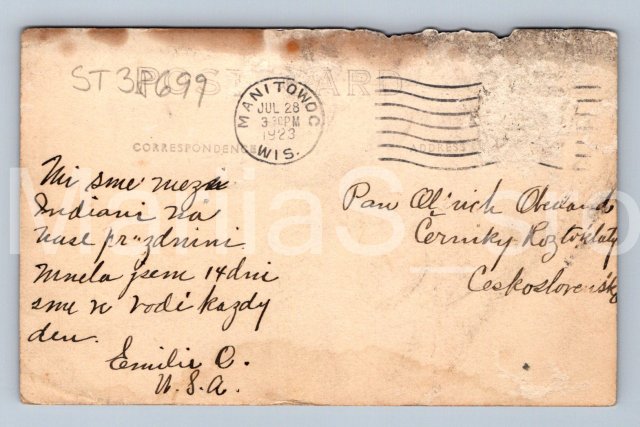 POST CARD
ST3P699
MANITOWOC
JUL 28
3-30PM
1923
WIS.
CORRESPONDENCE
ADDRESS
Mi sme mezi
Indiani na
nase prazdnini
Mnela jsem 14 dni
sme ve vodi kazdy
den.
Emilie O.
U.S.A.
Pan Oldrich
Černiky Roztoklaty
Československ